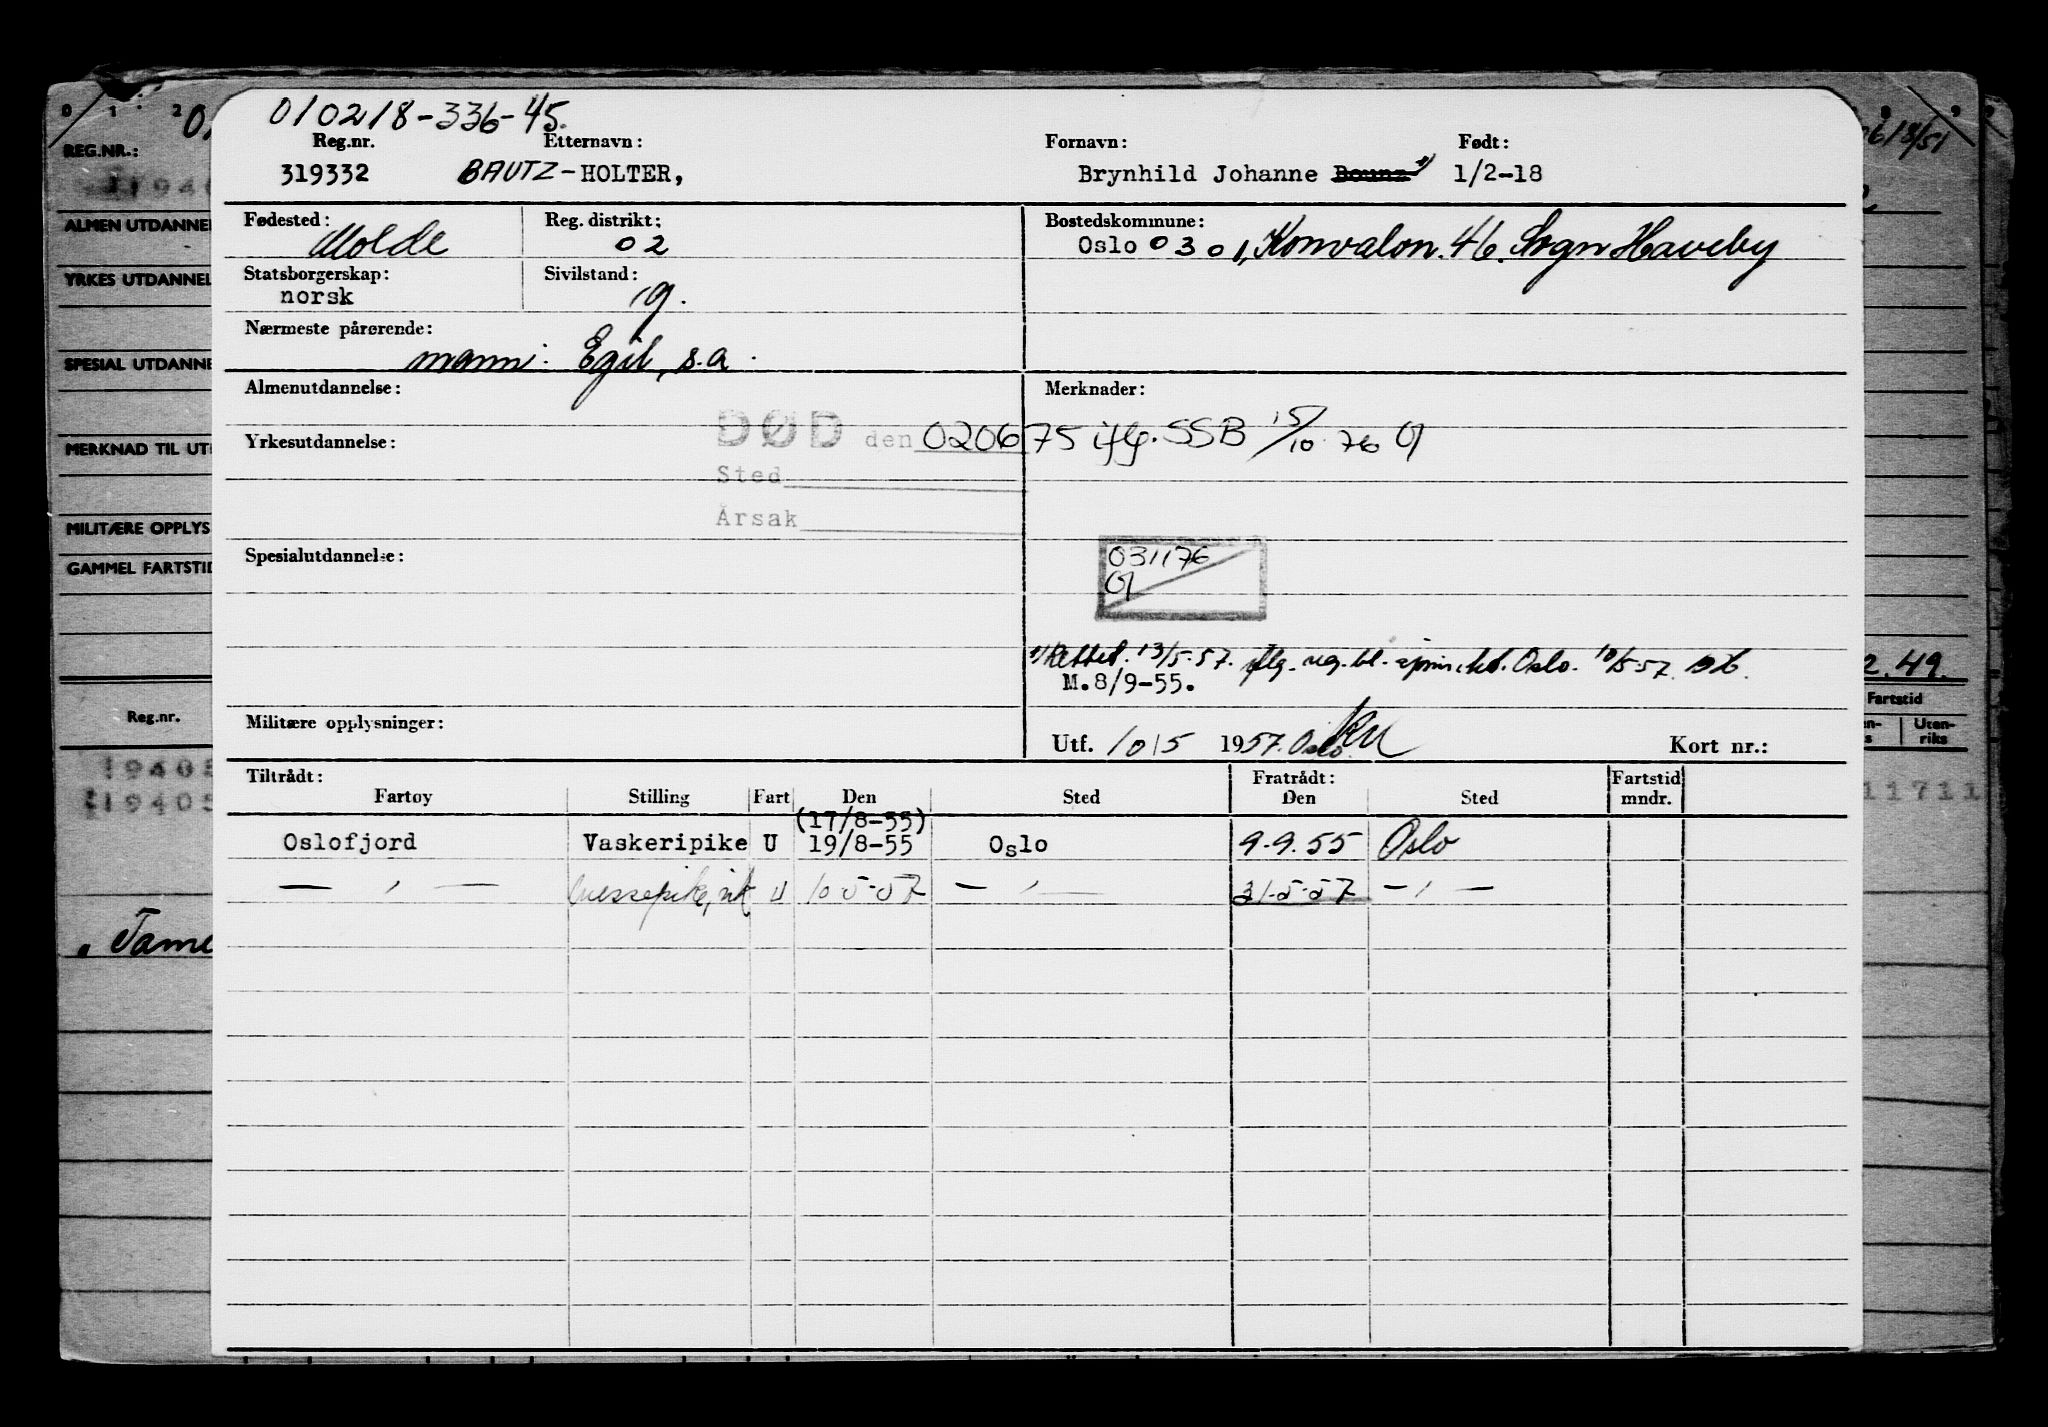 010218-336-45.
Reg.nr. Etternavn: Fornavn: Født:
319332 BAUTZ-HOLTER, Brynhild Johanne Bounz 1) 1/2-18
Fødested: Reg. distrikt: Bostedskommune:
Molde 02 Oslo 0301, Konvalon. 46. Sogn Haveby
Statsborgerskap: Sivilstand:
norsk g.
Nærmeste pårørende:
mann: Egil, s.a.
Almenutdannelse: Merknader:
DØD den 020675 iflg. SSB 15/10 76
Yrkesutdannelse:
Sted
Årsak
Spesialutdannelse:
031176
1) Rettet. 13/5-57. iflg. reg.bl. Oslo. 10/5-57.
M.8/9-55.
Militære opplysninger: Utf. 10/5 1957. Oslo. Kort nr.:
Tiltrådt: Fratrådt: Fartstid
Fartøy Stilling Fart Den Sted Den Sted mndr.
(17/8-55)
Oslofjord Vaskeripike U 19/8-55 Oslo 9.9.55 Oslo
— ' — Messepike, U 10-5-57 — ' — 31-5-57 — ' —
0 1 2
REG.NR.:
ALMEN UTDANNEL
YRKES UTDANNEL
SPESIAL UTDANNE
MERKNAD TIL UT
MILITÆRE OPPLYS
GAMMEL FARTSTID
Reg.nr.
19405
Tame
2.49.
Fartstid
Uten-
riks
11711